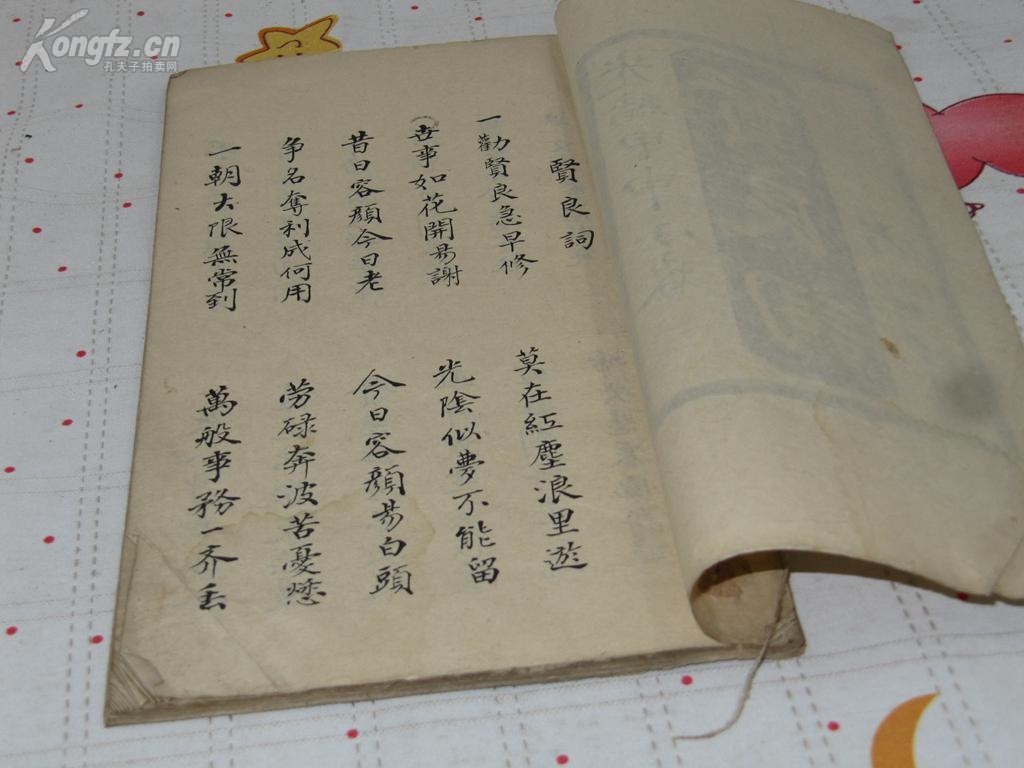 Kongfz.cn
孔夫子拍卖网
賢良詞
一勸賢良急早修 莫在紅塵浪里遊
世事如花開易謝 光陰似夢不能留
昔日容顔今日老 今日容顔易白頭
争名奪利成何用 劳碌奔波苦憂愁
一朝大限無常到 萬般事務一齐丢